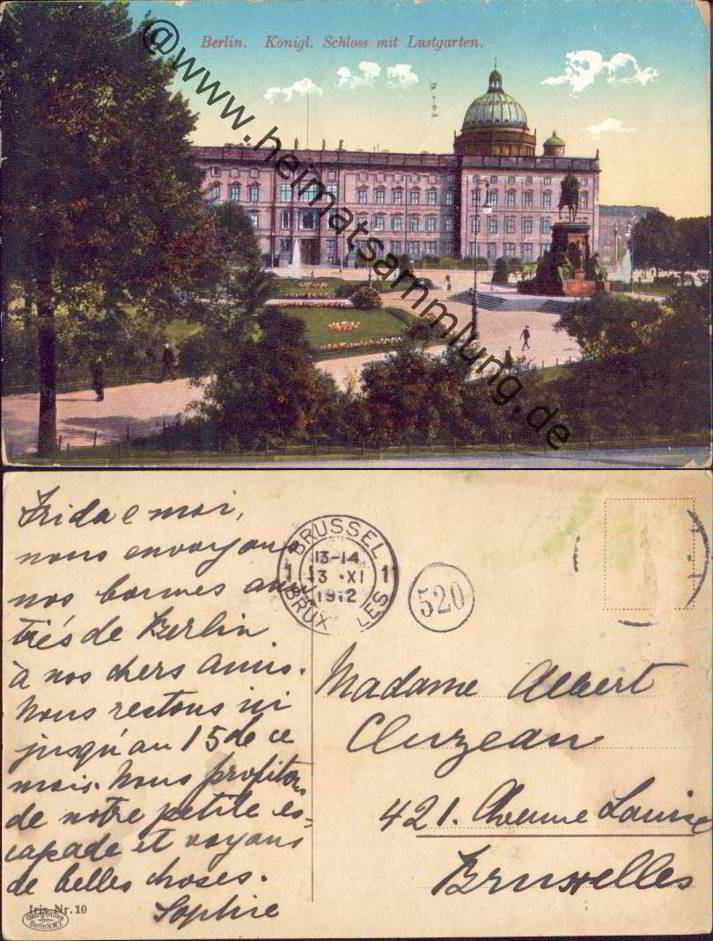 Berlin. Königl. Schloss mit Lustgarten.
@www.heimatsammlung.de
Frida e moi,
nous envoyons
nos bonnes ami-
tiés de Berlin
à nos chers amis.
Nous restons ici
jusqu'au 15 de ce
mois. Nous profitons
de notre petite es-
capade et voyons
de belles choses.
Sophie
BRUSSEL
13-14
1 13 · XI 1
1912
BRUXELLES
520
Madame Albert
Cluzeau
421. Avenue Louise
Bruxelles
Iris Nr. 10
Berlin N.W.7